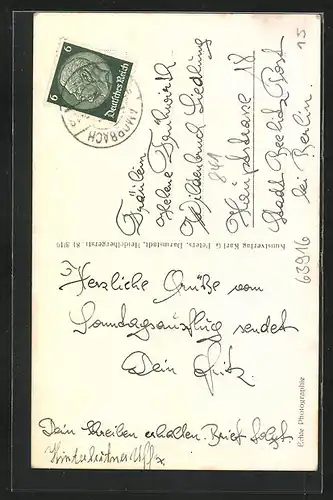 6
6
Deutsches Reich
AMORBACH
15
Fräulein
Helene
Wildenbruch Siedlung
841
Hauptstrasse 18
Stadt Beelitz Post
bei Berlin.
Kunstverlag Karl G. Peters, Darmstadt, Heidelbergerstr. 81 3/10
63916
Herzliche Grüße vom
Sonntagsausflug sendet
Dein Fritz
Echte Photographie
Dein Schreiben erhalten. Brief folgt.